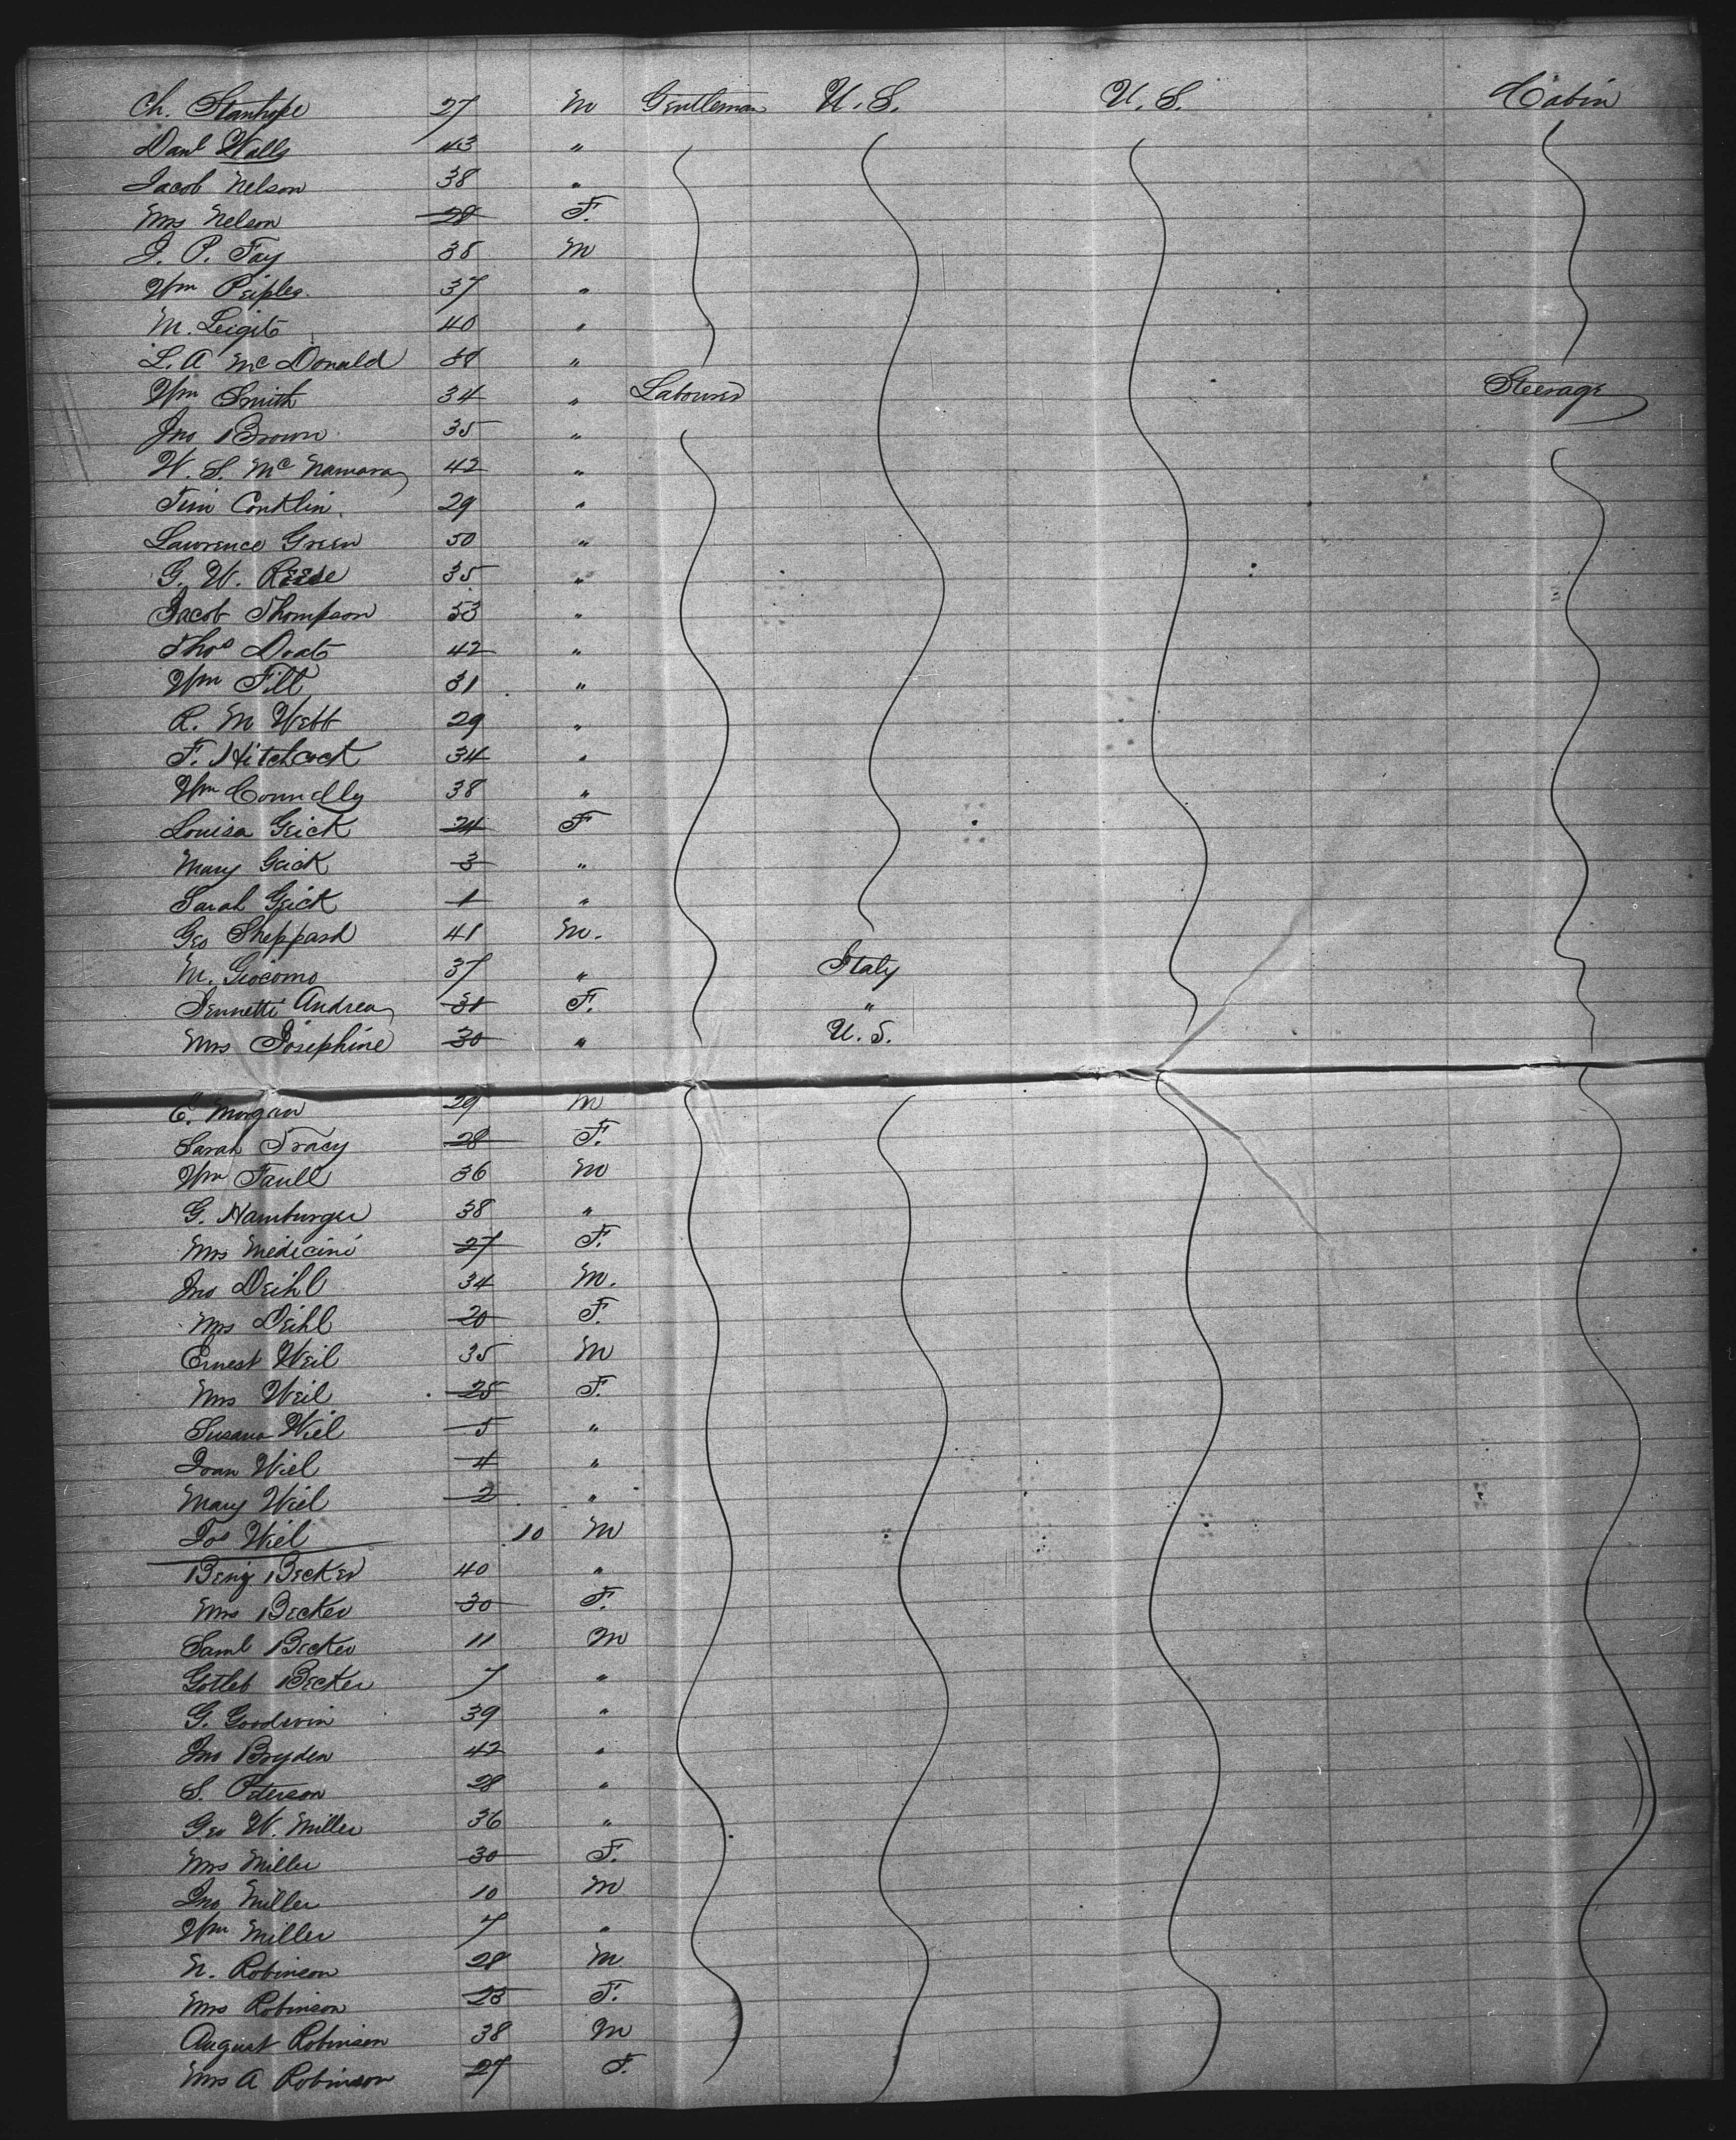 Ch. Stanhope 27 M Gentleman U. S. U. S. Cabin
Danl Walls 43 "
Jacob Nelson 38 "
Mrs Nelson 28 F.
J. P. Fay 38 M
Wm Peiples. 37 "
M. Leigit 40 "
L. A McDonald 38 "
Wm Smith 34 " Labourer Steerage
Jno Brown 35 "
W. S. McNamara 42 "
Jim Conklin. 29 "
Lawrence Green 50 "
G. W. Reese 35 "
Jacob Thompson 53 "
Thos Doat 42 "
Wm Filt 31 "
R. M Webb 29 "
F. Hitchcock 34 "
Wm Connelly 38 "
Louisa Geick 24 F
Mary Geick 3 "
Sarah Geick 1 "
Geo Sheppard 41 M.
M. Giocomo 37 " Italy
Jennetti Andrea 31 F. "
Mrs Josephine 30 " U. S.
E. Morgan 29 M
Sarah Tracy 28 F.
Wm Faull 36 M
G. Hamburger 38 "
Mrs Medicini 27 F.
Jno Deihl 34 M.
Mrs Deihl 20 F.
Ernest Weil 35 M
Mrs Weil 25 F.
Susana Wiel 5 "
Joan Wiel 4 "
Mary Wiel 2 "
Jos Wiel 10 M
Benj Becker 40 "
Mrs Becker 30 F.
Saml Becker 11 M
Gotleb Becker 7 "
G. Goodwin 39 "
Jno Bryden 42 "
S. Peterson 28 "
Geo W. Miller 36 "
Mrs Miller 30 F.
Jno Miller 10 M
Wm Miller 7 "
N. Robinson 28 M
Mrs Robinson 23 F.
August Robinson 38 M
Mrs A Robinson 27 F.